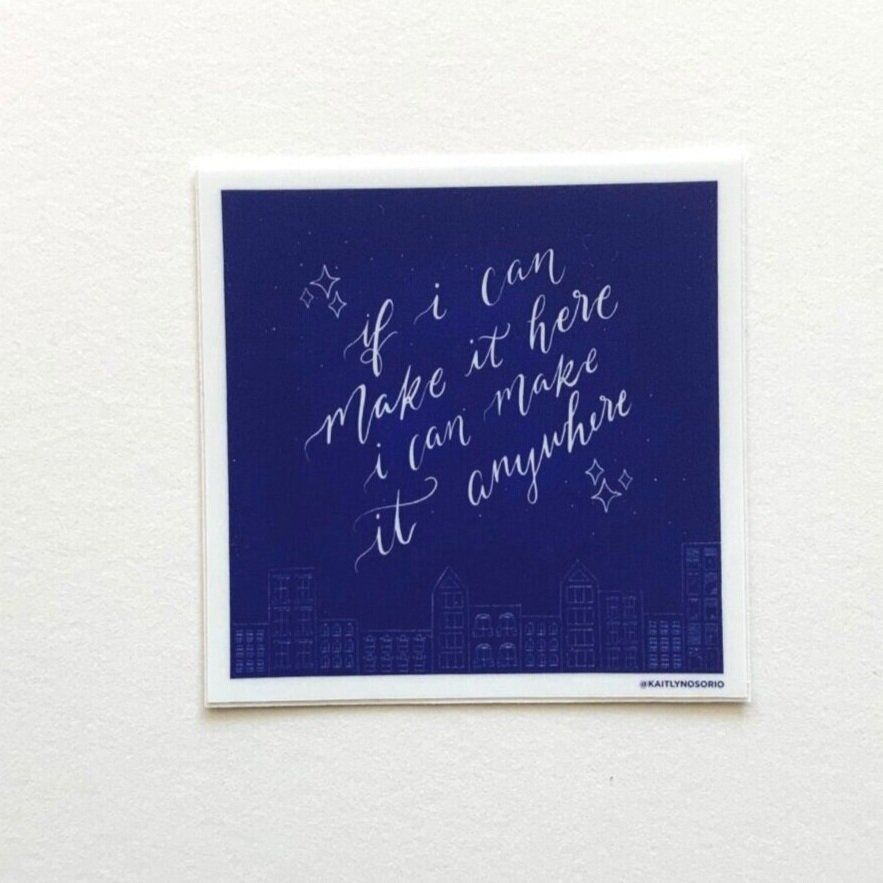 if i can
make it here
i can make
it anywhere
@KAITLYNOSORIO